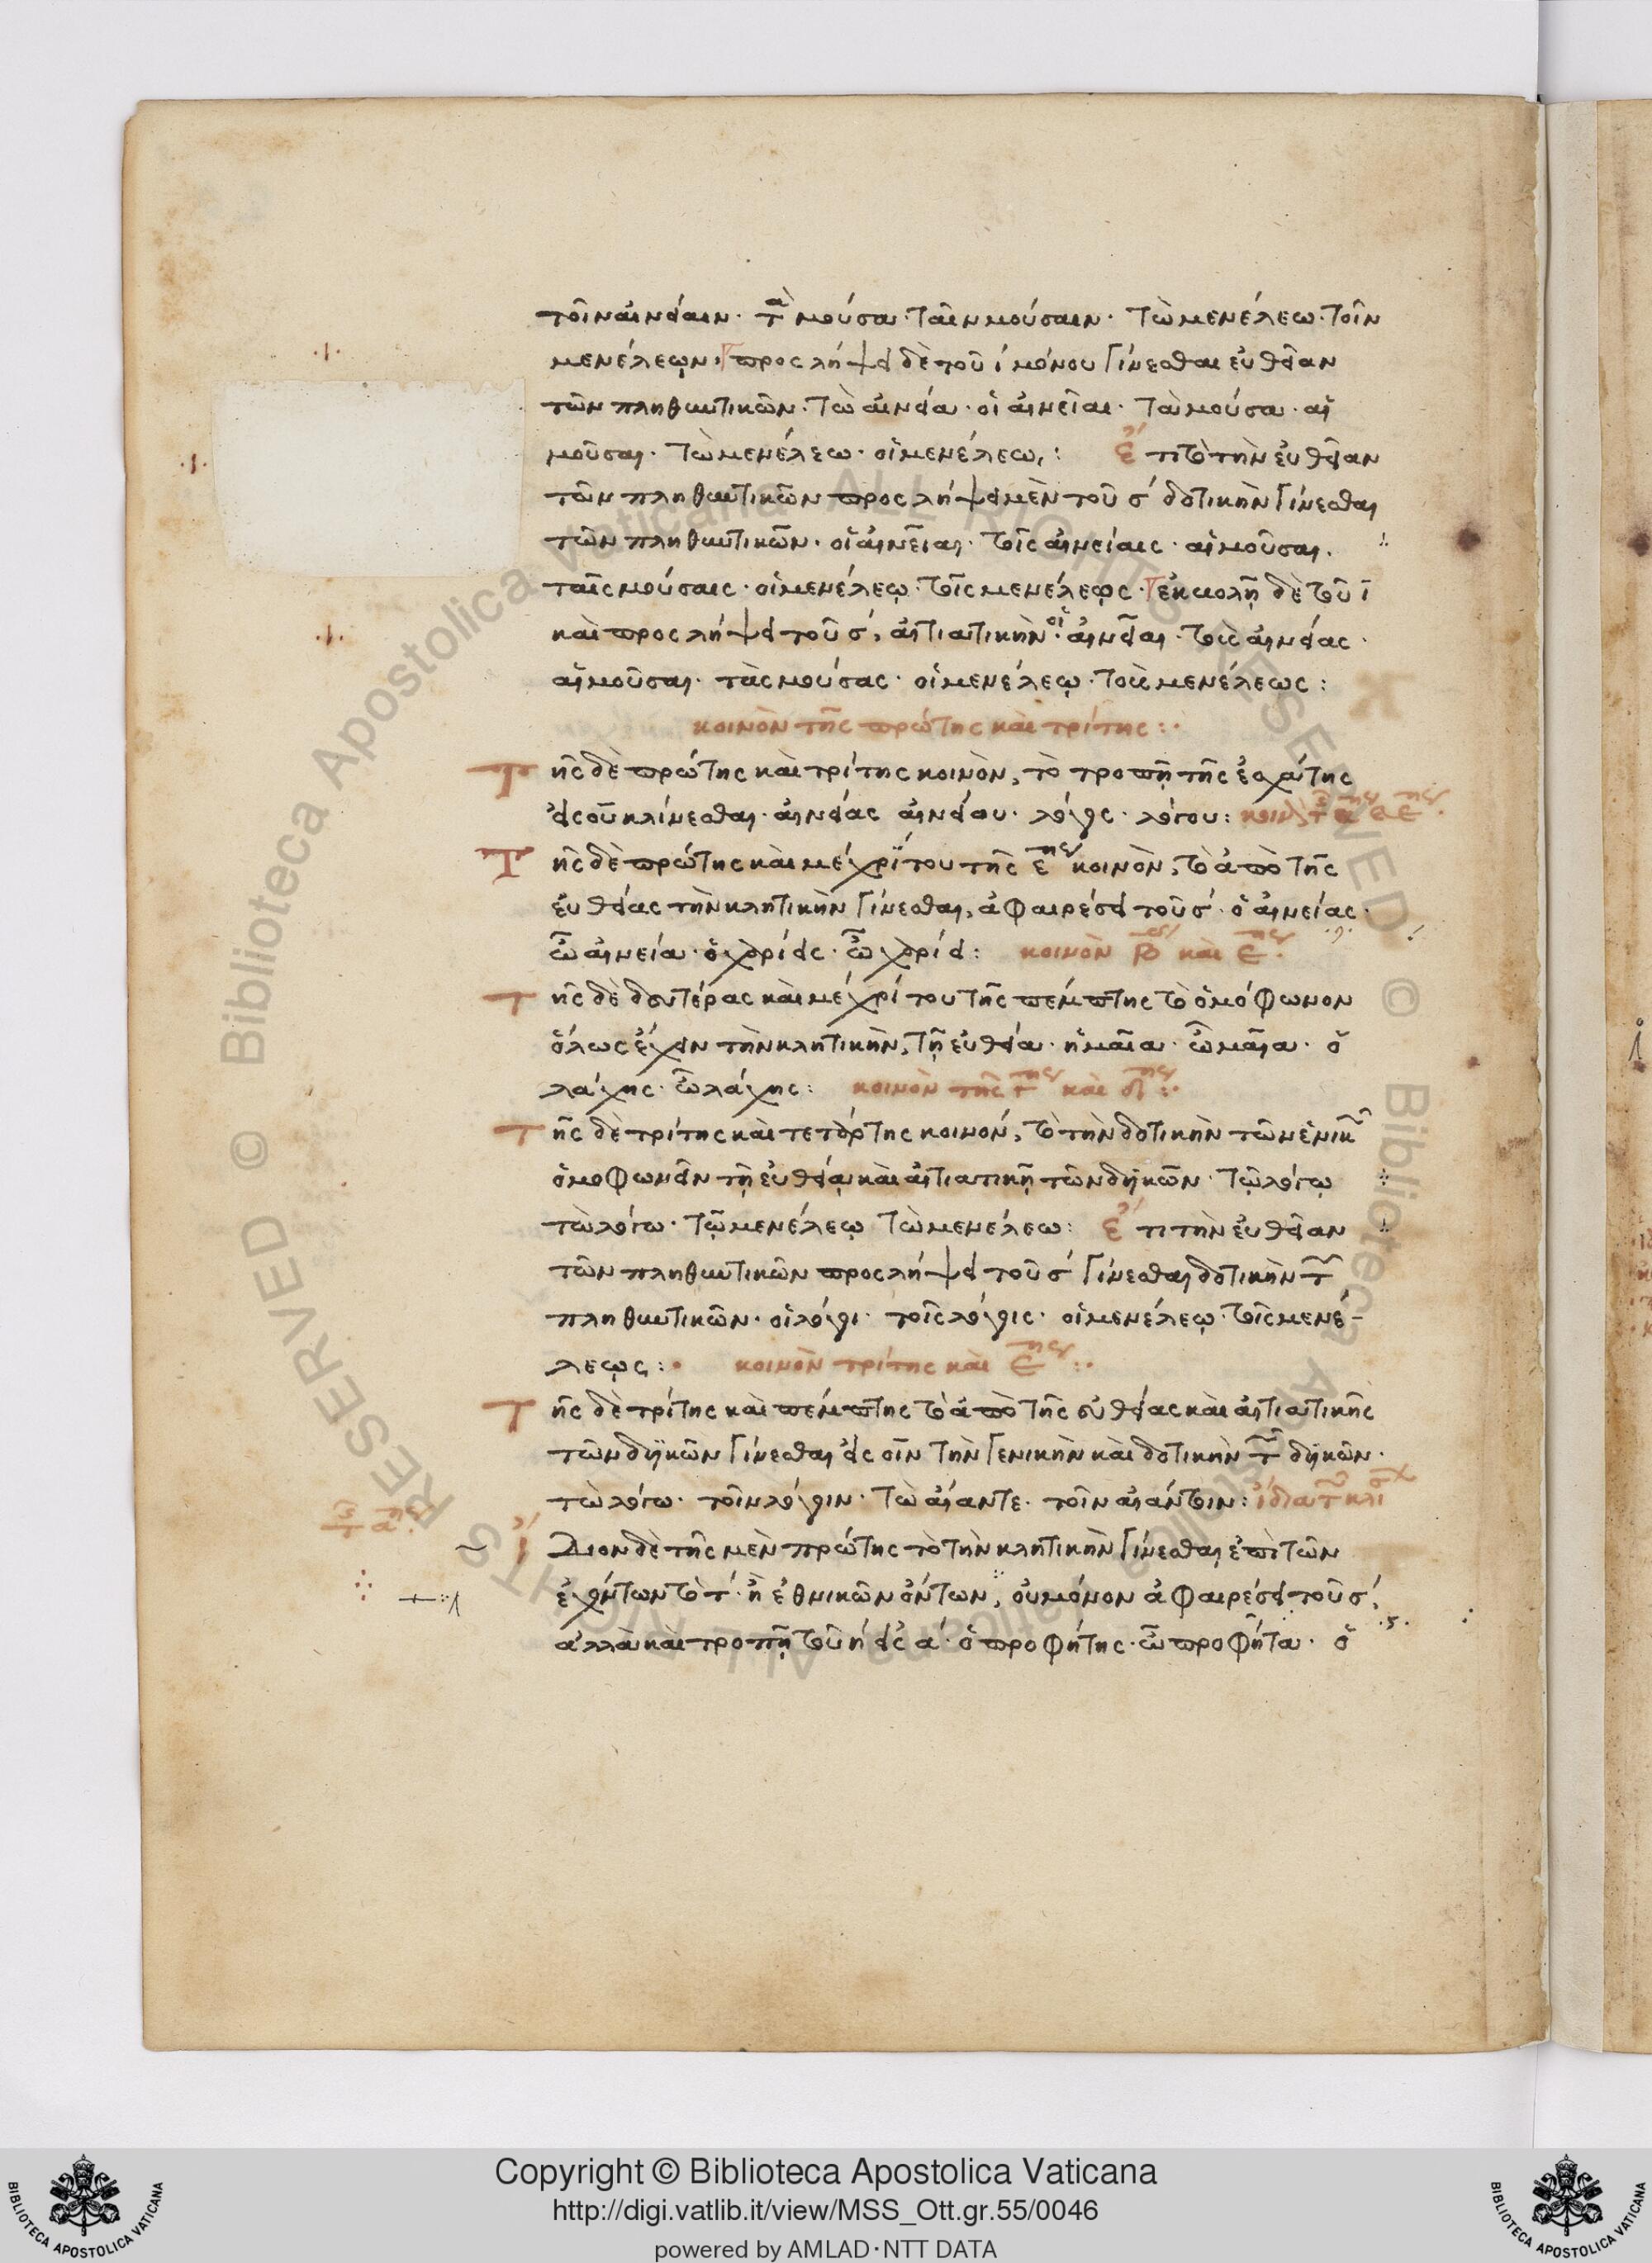 τοῖν αἰνείαιν· τὰ μούσα· ταῖν μούσαιν· τὼ μενέλεω· τοῖν
μενέλεῳν· προσλήψει δὲ τοῦ ι μόνου γίνεσθαι εὐθεῖαν
τῶν πληθυντικῶν· τὼ αἰνεία· οἱ αἰνεῖαι· τὰ μούσα· αἱ
μοῦσαι· τὼ μενέλεω· οἱ μενέλεῳ: ἔτι τὸ τὴν εὐθεῖαν
τῶν πληθυντικῶν προσλήψει μὲν τοῦ σ' δοτικὴν γίνεσθαι
τῶν πληθυντικῶν· οἱ αἰνεῖαι· τοῖς αἰνείαις· αἱ μοῦσαι·
ταῖς μούσαις· οἱ μενέλεῳ· τοῖς μενέλεῳς· ἐκβολῇ δὲ τοῦ ι
καὶ προσλήψει τοῦ σ', αἰτιατικήν· οἱ αἰνεῖαι· τοὺς αἰνείας·
αἱ μοῦσαι· τὰς μούσας· οἱ μενέλεῳ· τοὺς μενέλεως:
κοινὸν τῆς πρώτης καὶ τρίτης:
Τῆς δὲ πρώτης καὶ τρίτης κοινὸν, τὸ τροπῇ τῆς ἐσχάτης
εἰς ου κλίνεσθαι· αἰνείας αἰνείου· λόγος· λόγου: κοιν τ α ε
Τῆς δὲ πρώτης καὶ μέχρί του τῆς ε ης κοινὸν, τὸ ἀπὸ τῆς
εὐθείας τὴν κλητικὴν γίνεσθαι, ἀφαιρέσει τοῦ σ'· ὁ αἰνείας·
ὦ αἰνεία· ὁ χρύσης· ὦ χρύση: κοινὸν β καὶ ε ης·
Τῆς δὲ δευτέρας καὶ μέχρί του τῆς πέμπτης τὸ ὁμόφωνον
ὅλως ἔχειν τὴν κλητικὴν, τῇ εὐθεία· ἡ μαῖα· ὦ μαῖα· ὁ
λάχης· ὦ λάχης: κοινὸν τῆς γ ης καὶ δ ης:
Τῆς δὲ τρίτης καὶ τετάρτης κοινόν, τὸ τὴν δοτικὴν τῶν ἑνικ
ὁμοφωνεῖν τῇ εὐθείᾳ καὶ αἰτιατικῇ τῶν δυϊκῶν· τῷ λόγῳ
τὼ λόγω· τῷ μενέλεῳ τὼ μενέλεω: ἔτι τὴν εὐθεῖαν
τῶν πληθυντικῶν προσλήψει τοῦ σ' γίνεσθαι δοτικὴν τ
πληθυντικῶν· οἱ λόγοι· τοῖς λόγοις· οἱ μενέλεῳ· τοῖς μενέ-
λεῳς: κοινὸν τρίτης καὶ ε ης:
Τῆς δὲ τρίτης καὶ πέμπτης τὸ ἀπὸ τῆς εὐθείας καὶ αἰτιατικῆς
τῶν δυϊκῶν γίνεσθαι εἰς οιν τὴν γενικὴν καὶ δοτικὴν τ δυϊκῶν·
τὼ λόγω· τοῖν λόγοιν· τὼ αἴαντε· τοῖν αἰάντοιν: ἴδια τ κλι
τ α ης·
Ἴδιον δὲ τῆς μὲν πρώτης τὸ τὴν κλητικὴν γίνεσθαι ἐπὶ τῶν
ἐχόντων τὸ τ'· ἢ ἐθνικῶν ὄντων, οὐ μόνον ἀφαιρέσει τοῦ σ',
ἀλλὰ καὶ τροπῇ τοῦ η εἰς α· ὁ προφήτης· ὦ προφῆτα· ὁ
Copyright © Biblioteca Apostolica Vaticana
http://digi.vatlib.it/view/MSS_Ott.gr.55/0046
powered by AMLAD·NTT DATA
BIBLIOTECA APOSTOLICA VATICANA
BIBLIOTECA APOSTOLICA VATICANA
© Biblioteca Apostolica Vaticana ALL RIGHTS RESERVED © Biblioteca Apostolica Vaticana ALL RIGHTS RESERVED